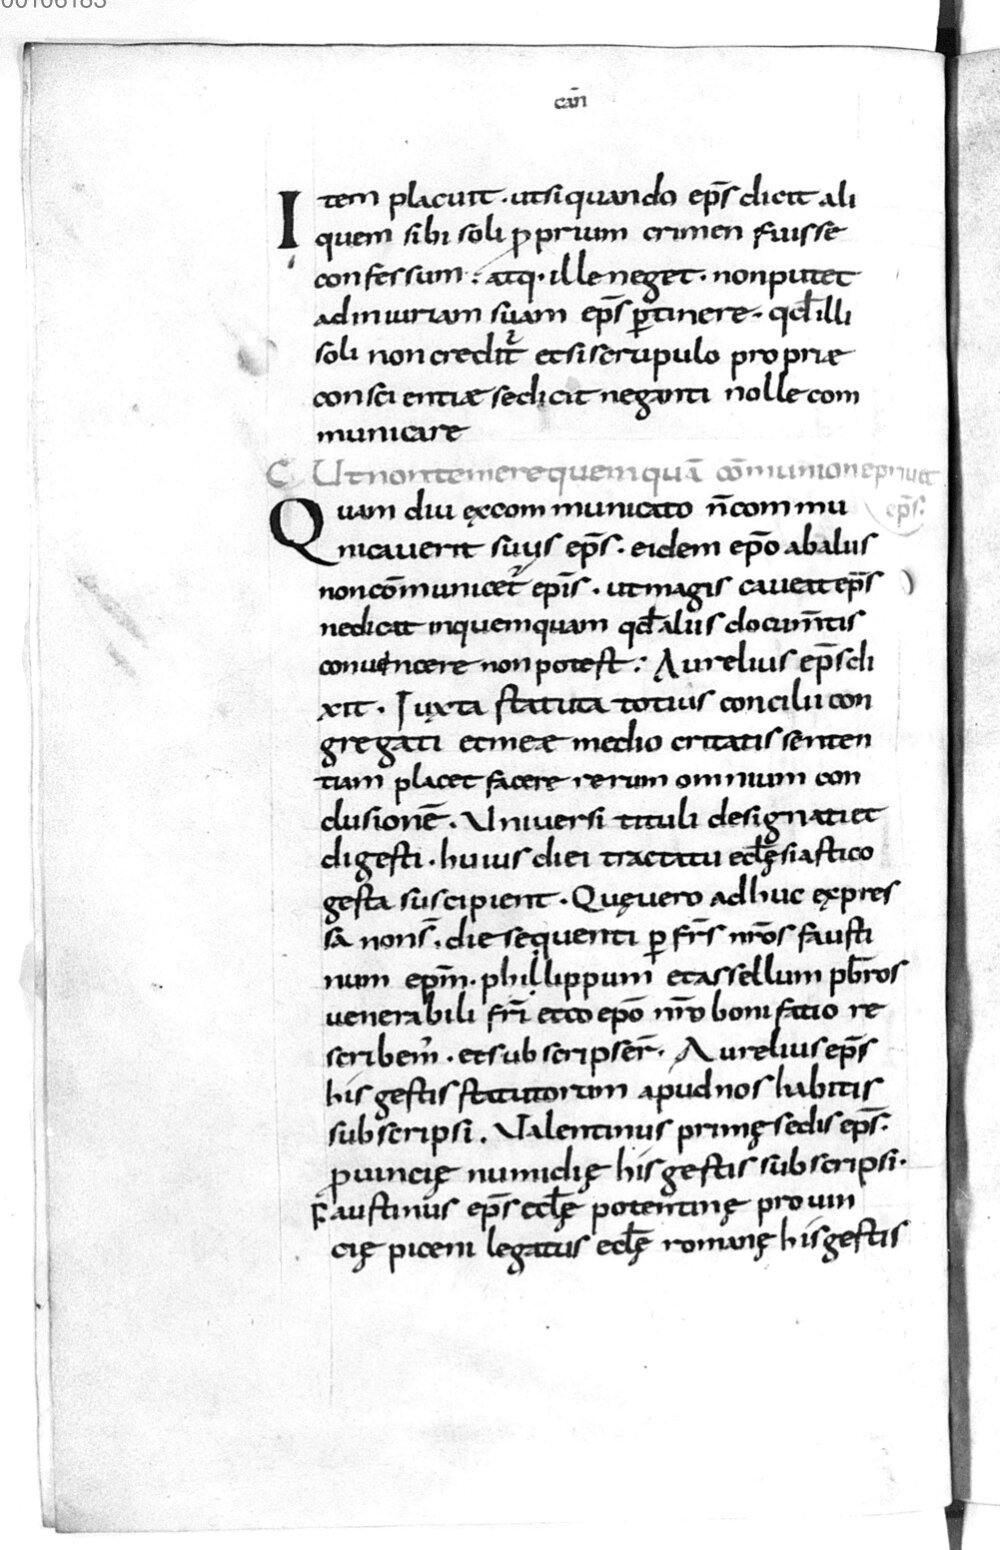 00106183
cān
Item placuit · utsiquando ep̄s dicit ali
quem sibi soli ꝓprium crimen fuisse
confessum : atq· ille neget · nonputet
adiniuriam suam ep̄s ꝑtinere · qd̄ illi
soli non credit᷑ etsi scrupulo propriae
conscientiae sedicit neganti nolle com
municare
C Utnontemerequemquā cōmunionepriuet
ep̄s:
Quam diu ęxcommunicato n̄commu
nicauerit suus ep̄s · eidem ep̄o abalus
noncōmunicet᷑ ep̄is · utmagis caueat ep̄s
nedicat inquemquam qd̄ alus documtis
conuincere non potest : Aurelius ep̄s di
xit · Iuxta statuta totius concilii con
gregati etmeae mediocritatis senten
tiam placet facere rerum omnium con
clusionē · Universi tituli designati et
digesti · huius diei tractatu ecl̄ęsiastico
gesta suscipient · Quęuero adhuc ęxpres
sā nons̄ · die sequenti ꝑ fr̄s nr̄os fausti
num ep̄m · phillippum et assellum pb̄ros
uenerabili fr̄i et coep̄o nr̄o bonifatio re
scribem᷒ · etsubscripser̄ · Aurelius ep̄s
his gestis statutorum apudnos habitis
subscripsi · Valentinus primę sedis ep̄s·
ꝓuincię numidię his gestis subscripsi·
Faustinus ep̄s ecl̄ę potentinę prouin
cię piceni legatus ecl̄ę romanę his gestis